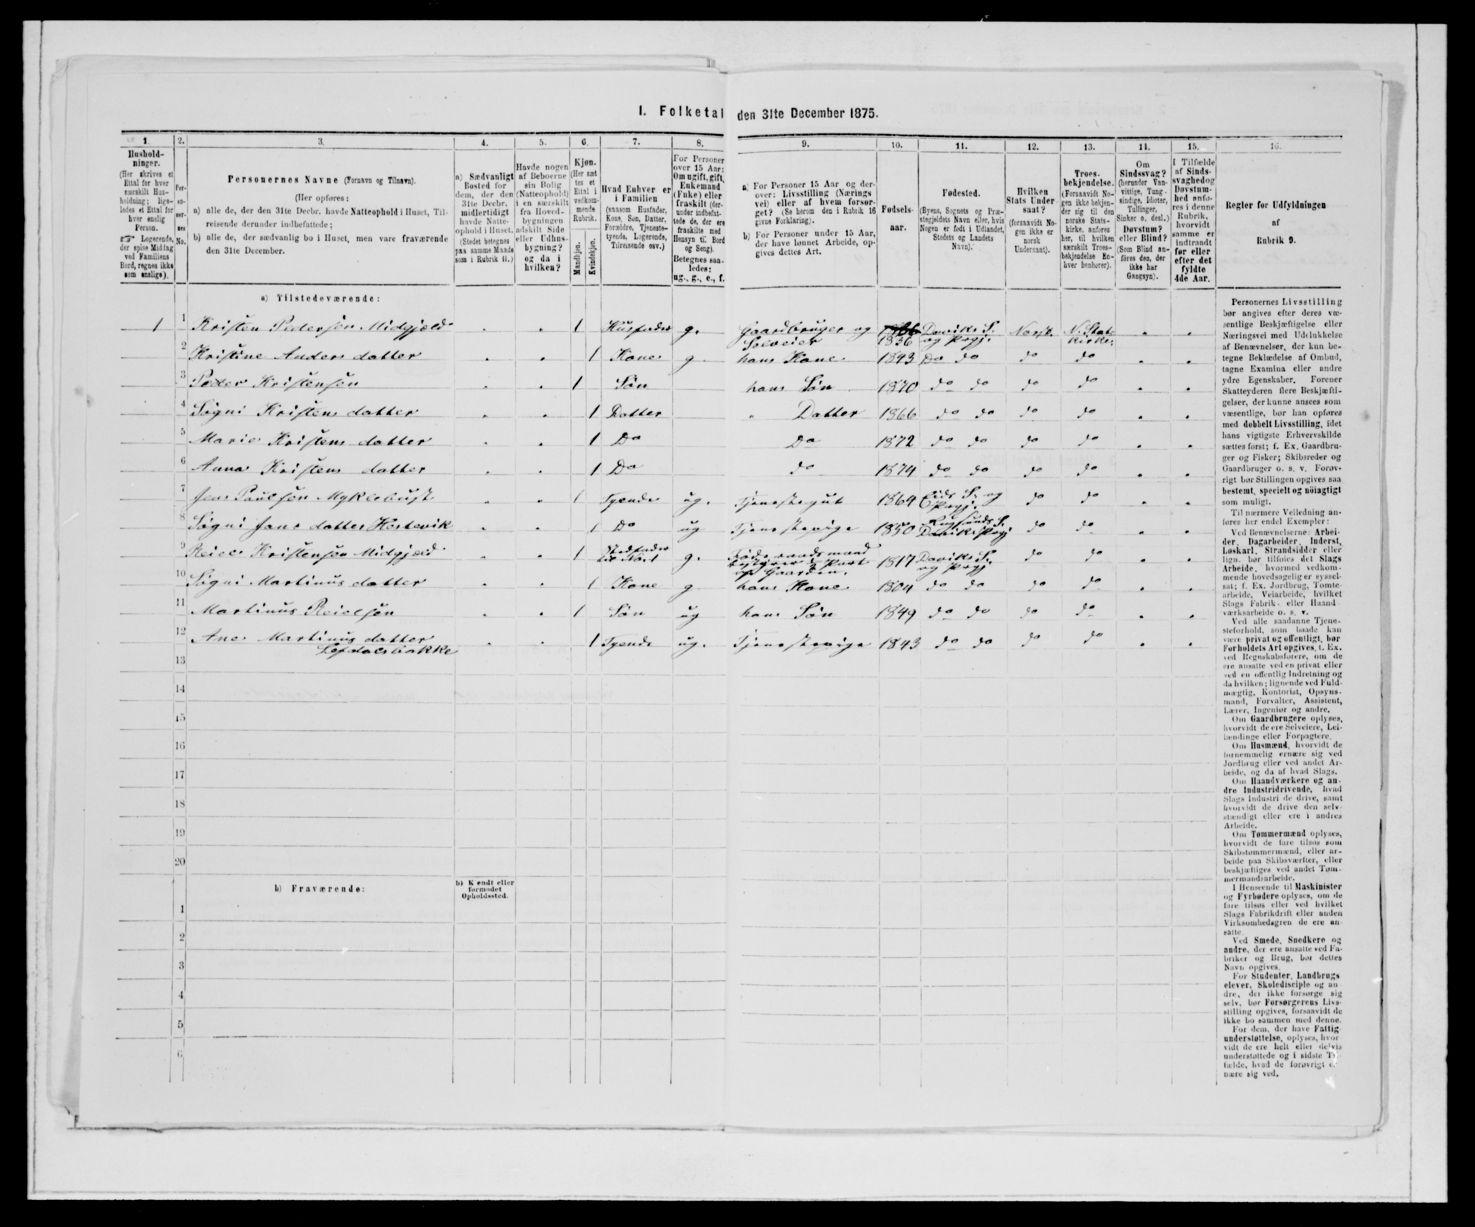 I. Folketal den 31te December 1875.
1. 2. 3. 4. 5. 6. 7. 8. 9. 10. 11. 12. 13. 14. 15. 16.
Hushold-
ninger.
(Her skrives et
Ettal for hver
særskilt Hus-
holdning; lige-
ledes et Ettal for
hver enslig
Person.
Logerende,
der spise Middag
ved Familiens
Bord, regnes ikke
som enslige).
Per-
so-
ner-
nes
No.
Personernes Navne (Fornavn og Tilnavn).
(Her opføres:
a) alle de, der den 31te Decbr. havde Natteophold i Huset, Til-
reisende derunder indbefattede;
b) alle de, der sædvanlig bo i Huset, men vare fraværende
den 31te December.
a) Sædvanligt
Bosted for
dem, der den
31te Decbr.
midlertidigt
havde Natte-
ophold i Huset.
(Stedet betegnes
paa samme Maade
som i Rubrik 11.)
Havde nogen
af Beboerne
sin Bolig
(Natteophold)
i en særskilt
fra Hoved-
bygningen
adskilt Side
eller Udhus-
bygning?
og da i
hvilken?
Kjøn.
(Her sæt-
tes et
Ettal i
vedkom-
mende
Rubrik.
Mandkjøn.
Kvindekjøn.
Hvad Enhver er
i Familien
(saasom Husfader,
Kone, Søn, Datter,
Forældre, Tjeneste-
tyende, Logerende,
Tilreisende osv.)
For Personer
over 15 Aar:
Om ugift, gift,
Enkemand
(Enke) eller
fraskilt (der-
under indbefat-
tede de, der ere
fraskilte med
Hensyn til Bord
og Seng).
Betegnes saa-
ledes:
ug., g., e., f.
a) For Personer 15 Aar og der-
over: Livsstilling (Nærings-
vei) eller af hvem forsør-
get? (Se herom den i Rubrik 16
givne Forklaring).
b) For Personer under 15 Aar,
der have lønnet Arbeide, op-
gives dettes Art.
Fødsels-
aar.
Fødested.
(Byens, Sognets og Præ-
stegjeldets Navn eller, hvis
Nogen er født i Udlandet,
Stedets og Landets
Navn).
Hvilken
Stats Under-
saat?
(forsaavidt No-
gen ikke er
norsk
Undersaat).
Troes-
bekjendelse.
(Forsaavidt No-
gen ikke bekjen-
der sig til den
norske Stats-
kirke, anføres
her, til hvilken
særskilt Troes-
bekjendelse En-
hver henhører).
Om
Sindssvag?
(herunder Van-
vittige, Tung-
sindige, Idioter,
Tullinger,
Sinker o. desl.)
Døvstum?
eller Blind?
(Som Blind an-
føres den, der
ikke har
Gangsyn).
I Tilfælde
af Sinds-
svaghed og
Døvstum-
hed anfø-
res i denne
Rubrik,
hvorvidt
samme er
indtraadt
før eller
efter det
fyldte
4de Aar.
Regler for Udfyldningen
af
Rubrik 9.
a) Tilstedeværende:
1 1 Kristen Pedersen Midgjæld 1 Husfader g. Gaardbruger og Selveier 1836 Daviks S. og Prgj. Norsk N. Stats Kirke
2 Kristine Anders datter 1 Kone g. hans Kone 1843 Do do do do
3 Peder Kristensen 1 Søn hans Søn 1870 do do do do
4 Signi Kristens datter 1 Datter " Datter 1866 do do do do
5 Marie Kristens datter 1 Do Do 1872 do do do do
6 Anna Kristens datter 1 Do do 1874 do do do do
7 Jens Paulsøn Myklebust 1 Tyende ug. Tjenestegut 1864 Eids S. og Prgj. do do
8 Signi Jans datter Hestevik 1 Do ug Tjenestepige 1850 Daviks Prgj do do
9 Reiel Kristensen Midgjæld 1 g. Føderaadsmand 1817 Daviks S. og Prgj do do
10 Signi Martinus datter 1 Kone g hans Kone 1804 do do do do
11 Martinus Reielsøn 1 Søn ug hans Søn 1849 do do do do
12 Ane Martinus datter 1 Tyende ug. Tjenestepige 1843 do do do do
Lefdalsbakke
13
14
15
16
17
18
19
20
b) Fraværende:
b) Kjendt eller
formodet
Opholdssted.
1
2
3
4
5
6
Personernes Livsstilling
bør angives efter deres væ-
sentlige Beskjæftigelse eller
Næringsvei med Udelukkelse
af Benævnelser, der kun be-
tegne Beklædelse af Ombud,
tagne Examina eller andre
ydre Egenskaber. Forener
Skatteyderen flere Beskjæfti-
gelser, der kunne ansees som
væsentlige, bør han opføres
med dobbelt Livsstilling, idet
hans vigtigste Erhvervskilde
sættes først; f. Ex. Gaardbru-
ger og Fisker; Skibsreder og
Gaardbruger o. s. v. Forøv-
rigt bør Stillingen opgives saa
bestemt, specielt og nöiagtigt
som muligt.
Til nærmere Veiledning an-
føres her endel Exempler:
Ved Benævnelserne: Arbei-
der, Dagarbeider, Inderst,
Løskarl, Strandsidder eller
lign. bør tilføies det Slags
Arbeide, hvormed vedkom-
mende hovedsagelig er syssel-
sat; f. Ex. Jordbrug, Tomte-
arbeide, Veiarbeide, hvilket
Slags Fabrik- eller Haand-
værksarbeide o. s. v.
Ved alle saadanne Tjene-
steforhold, som baade kan
være privat og offentligt, bør
Forholdets Art opgives, f. Ex.
ved Regnskabsførere, om de
ere ansatte ved en privat eller
ved en offentlig Indretning og
da hvilken; lignende ved Fuld-
mægtig, Kontorist, Opsyns-
mand, Forvalter, Assistent,
Lærer, Ingeniør og andre.
Om Gaardbrugere oplyses,
hvorvidt de ere Selveiere, Lei-
lændinge eller Forpagtere.
Om Husmænd, hvorvidt de
fornemmelig ernære sig ved
Jordbrug eller ved andet Ar-
beide, og da af hvad Slags.
Om Haandværkere og an-
dre Industridrivende, hvad
Slags Industri de drive, samt
hvorvidt de drive den selv-
stændigt eller ere i andres
Arbeide.
Om Tømmermænd oplyses,
hvorvidt de fare tilsøs som
Skibstømmermænd, eller ar-
beide paa Skibsværfter, eller
beskjæftiges ved andet Tøm-
mermandsarbeide.
I Henseende til Maskinister
og Fyrbødere oplyses, om de
fare tilsøs eller ved hvilket
Slags Fabrikdrift eller anden
Virksomhedsgren de ere an-
satte.
Ved Smede, Snedkere og
andre, der ere ansatte ved Fa-
briker og Brug, bør dettes
Navn opgives.
For Studenter, Landbrugs-
elever, Skoledisciple og an-
dre, der ikke forsørge sig
selv, bør Forsørgerens Livs-
stilling opgives, forsaavidt de
ikke bo sammen med denne.
For dem, der have Fattig-
understøttelse, oplyses, hvor-
vidt de ere helt eller delvis
understøttede og i sidste Til-
fælde, hvad de forøvrigt er-
nære sig ved.